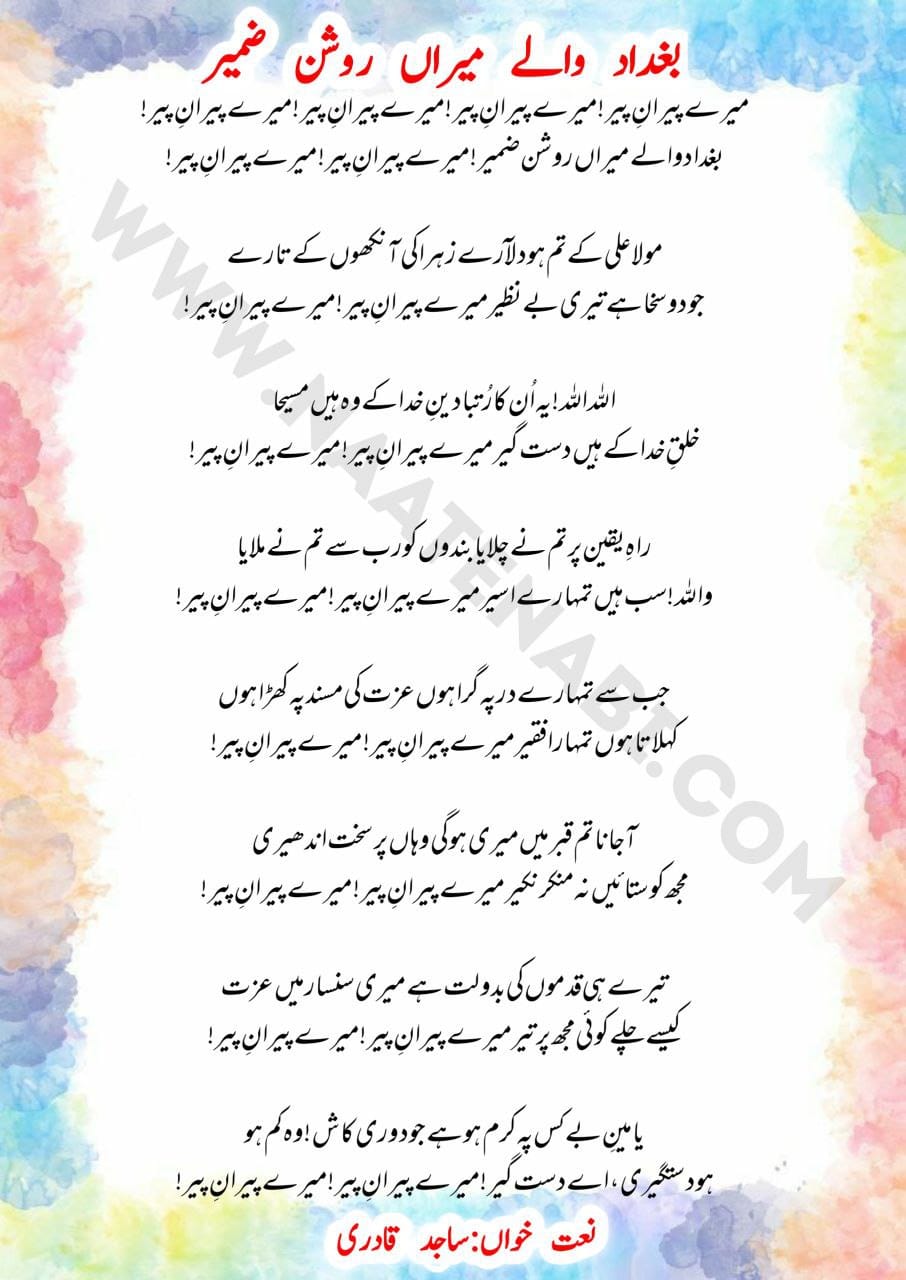 بغداد والے میراں روشن ضمیر
میرے پیرانِ پیر! میرے پیرانِ پیر! میرے پیرانِ پیر! میرے پیرانِ پیر!
بغداد والے میراں روشن ضمیر! میرے پیرانِ پیر! میرے پیرانِ پیر!
مولا علی کے تم ہو دلآرے زہرا کی آنکھوں کے تارے
جودو سخا ہے تیری بے نظیر میرے پیرانِ پیر! میرے پیرانِ پیر!
اللہ اللہ! یہ اُن کا رُتبا دینِ خدا کے وہ ہیں مسیحا
خلقِ خدا کے ہیں دست گیر میرے پیرانِ پیر! میرے پیرانِ پیر!
راہِ یقین پر تم نے چلایا بندوں کو رب سے تم نے ملایا
واللہ! سب ہیں تمہارے اسیر میرے پیرانِ پیر! میرے پیرانِ پیر!
جب سے تمہارے در پہ گرا ہوں عزت کی مسند پہ کھڑا ہوں
کہلاتا ہوں تمہارا فقیر میرے پیرانِ پیر! میرے پیرانِ پیر!
آجانا تم قبر میں میری ہوگی وہاں پر سخت اندھیری
مجھ کو ستائیں نہ منکر نکیر میرے پیرانِ پیر! میرے پیرانِ پیر!
تیرے ہی قدموں کی بدولت ہے میری سنسار میں عزت
کیسے چلے کوئی مجھ پر تیر میرے پیرانِ پیر! میرے پیرانِ پیر!
یامینِ بے کس پہ کرم ہو ہے جو دوری کاش! وہ کم ہو
ہو دستگیری، اے دست گیر! میرے پیرانِ پیر! میرے پیرانِ پیر!
نعت خواں: ساجد قادری
WWW.NAATENABI.COM